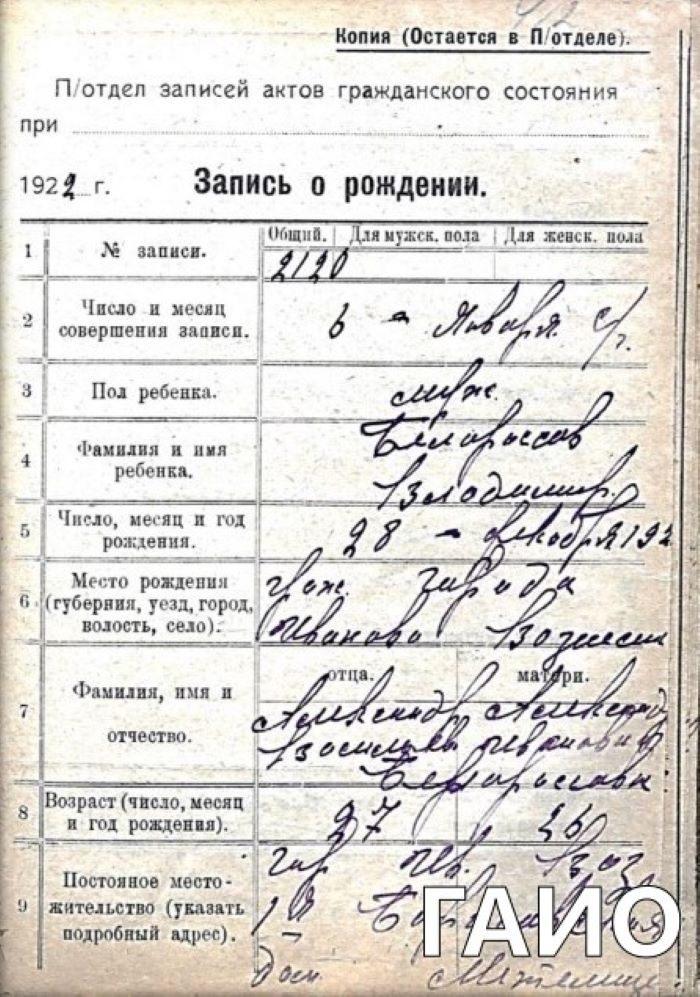 Копия (Остается в П/отделе).
П/отдел записей актов гражданского состояния
при
1922 г. Запись о рождении.
1 № записи. Общий. Для мужск. пола Для женск. пола
2120
2 Число и месяц совершения записи. 6 - Января с/г.
3 Пол ребенка. муж.
4 Фамилия и имя ребенка. Белороссов
Владимир
5 Число, месяц и год рождения. 28 - декабря 192
6 Место рождения (губерния, уезд, город, волость, село). города
Иваново Вознесен
7 Фамилия, имя и отчество. отца. матери.
Александр Александр
Васильев Ивановна
Белороссовы
8 Возраст (число, месяц и год рождения). 27 26
9 Постоянное местожительство (указать подробный адрес). гор Ив. Воз
1 я
дом
ГАИО